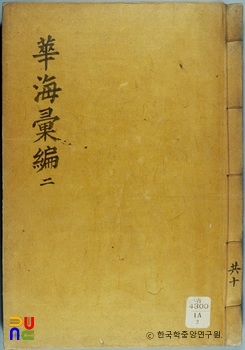 華海彙編 二
共十
4300
© 한국학중앙연구원